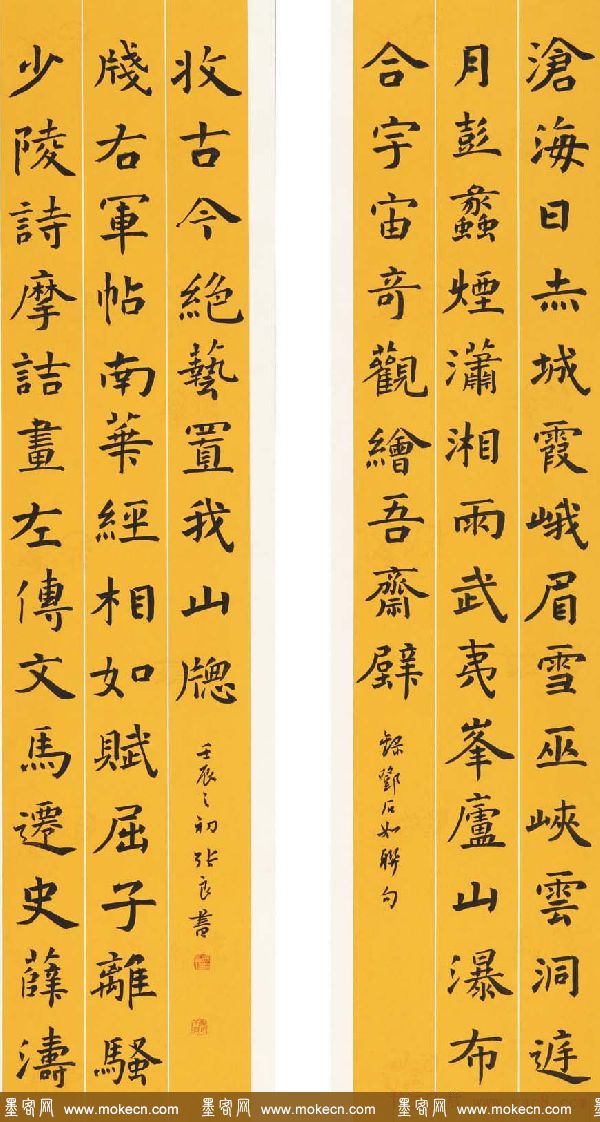 滄海日赤城霞峨眉雪巫峽雲洞庭
月彭蠡煙瀟湘雨武夷峯廬山瀑布
合宇宙奇觀繪吾齋壁
録鄧石如聯句
少陵詩摩詰畫左傳文馬遷史薛濤
牋右軍帖南華經相如賦屈子離騷
收古今絶藝置我山牕
壬辰之初張良書
墨客网 www.mokecn.com 墨客网 www.mokecn.com 墨客网 www.mokecn.com 墨客网